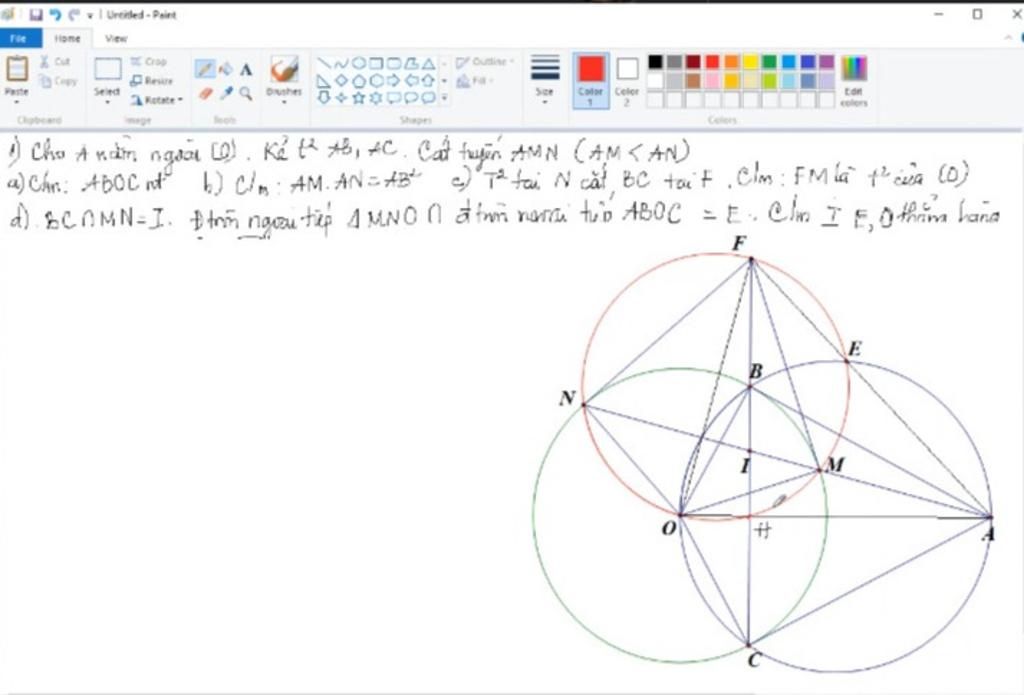 Untitled - Paint
File Home View
Paste Cut Copy Select Crop Resize Rotate Brushes Outline Fill Size Color 1 Color 2 Edit colors
Clipboard Image Tools Shapes Colors
1) Cho A nằm ngoài (O). Kẻ t² AB, AC. Cát tuyến AMN (AM < AN)
a) Cm: ABOC nt b) C/m: AM.AN = AB² c) T² tại N cắt BC tại F. C/m: FM là t² của (O)
d). BC∩MN=I. Đtròn ngoại tiếp Δ MNO ∩ đtròn ngoại tiếp ABOC = E. C/m I E, O thẳng hàng
F
E
B
N
I M
O H A
C